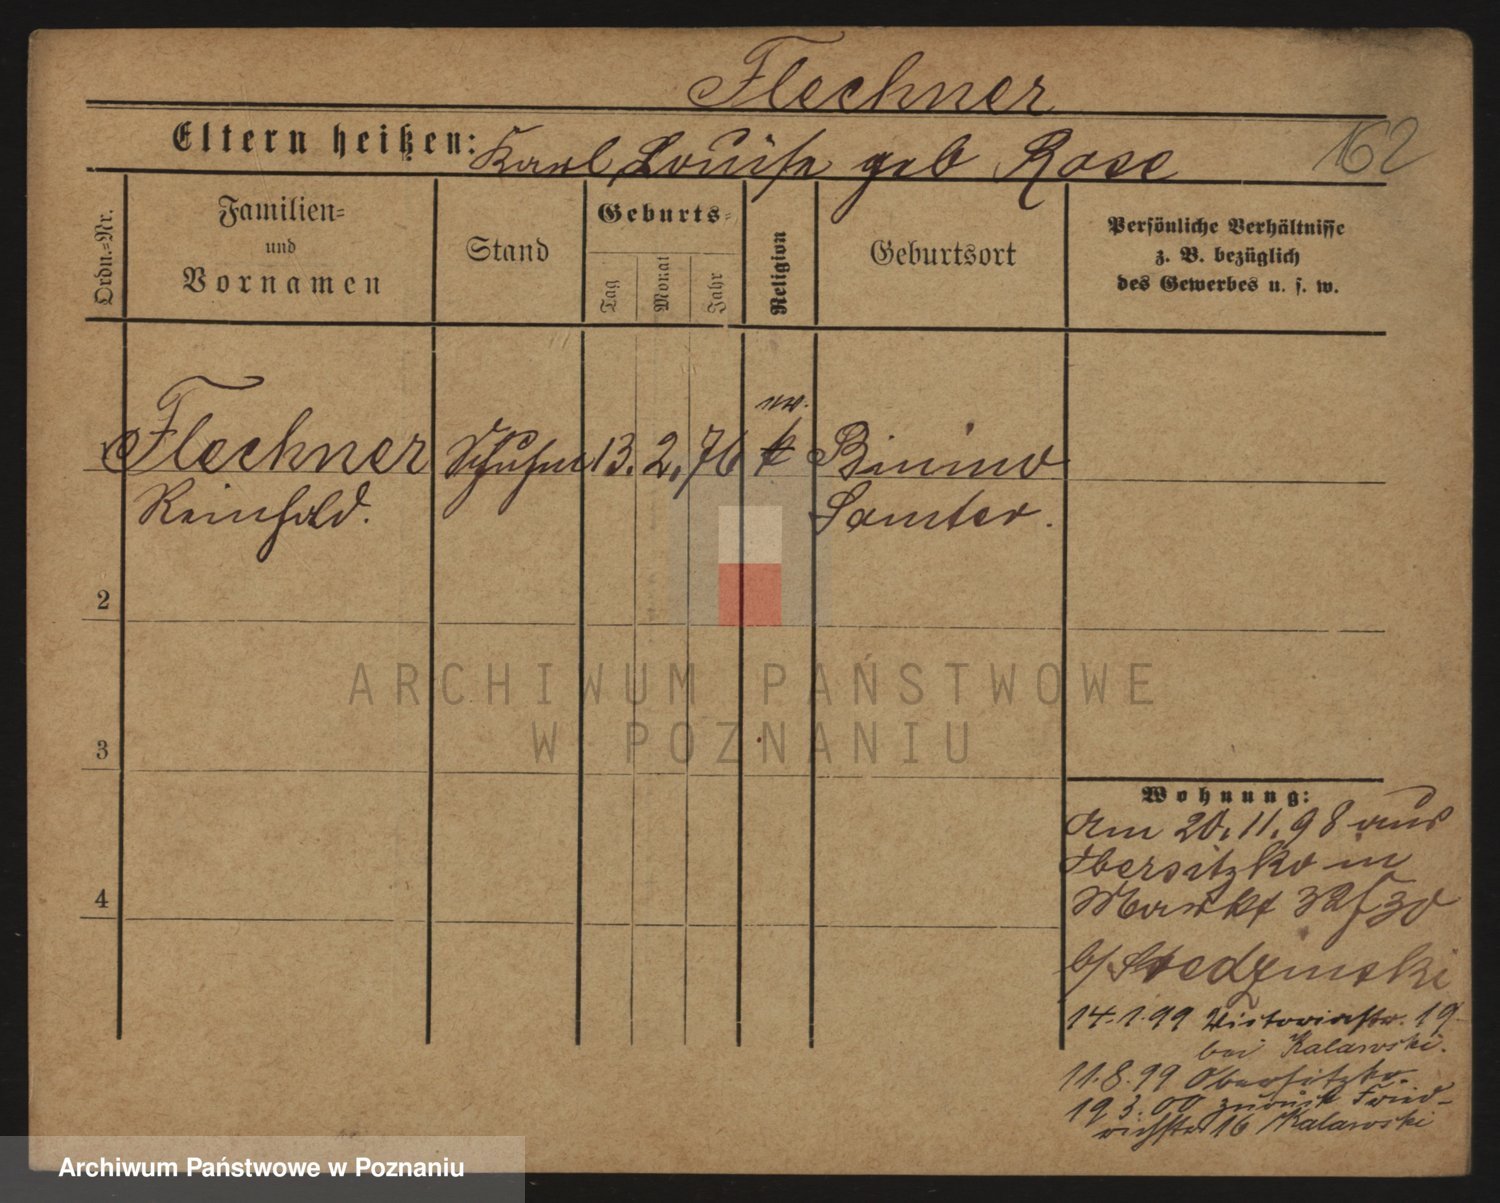 Flechner
Eltern heißen: Karl, Louise geb Rose
162
Ordn.=Nr.
Familien=
und
Vornamen
Stand
Geburts=
Tag
Monat
Jahr
Religion
Geburtsort
Persönliche Verhältnisse
z. B. bezüglich
des Gewerbes u. s. w.
ev.
Flechner 13. 2. 76 k Binino
Reinhold. Samter.
2
3
4
Wohnung:
Am 20. 11. 98 aus
Obersitzko in
Markt
b/
14. 1. 99 Victoriastr. 19
bei Kalawski.
11. 8. 99 Obersitzko.
19 3. 00 zurück Fried-
richstr 16 Kalawski
ARCHIWUM PAŃSTWOWE
W POZNANIU
Archiwum Państwowe w Poznaniu